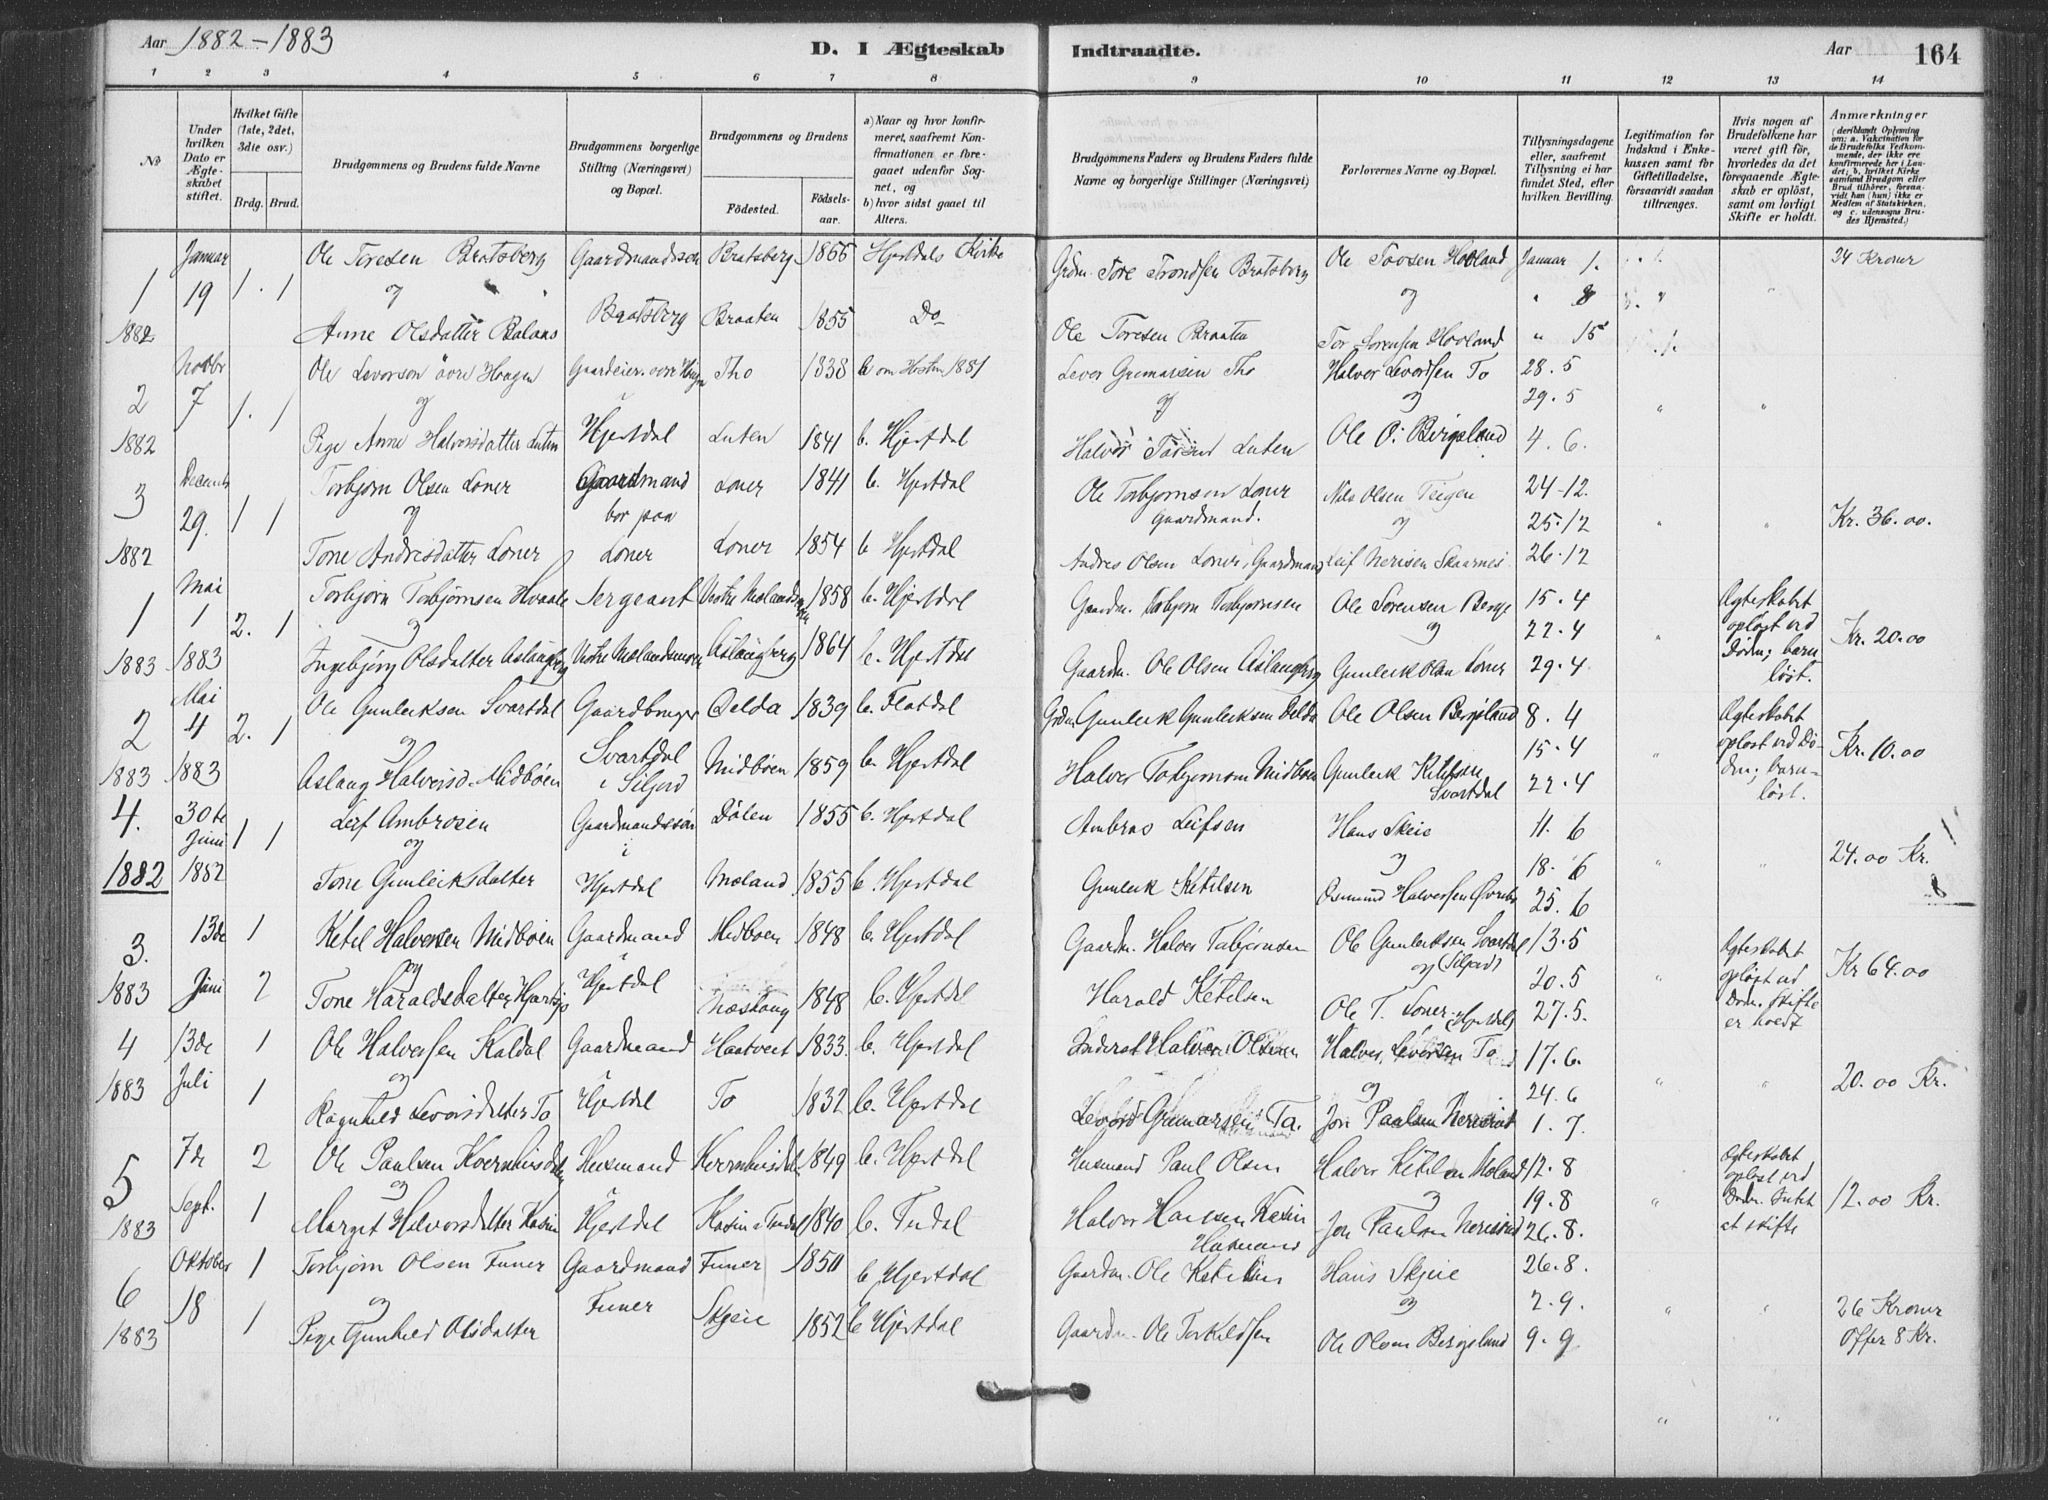 Aar 1882-1883
D. I Ægteskab
Indtraadte.
Aar
164
1 2 3 4 5 6 7 8 9 10 11 12 13 14
No
Under hvilken Dato er Ægteskabet stiftet.
Hvilket Gifte (1ste, 2det, 3die osv.)
Brdg. Brud.
Brudgommens og Brudens fulde Navne
Brudgommens borgerlige Stilling (Næringsvei) og Bopæl.
Brudgommens og Brudens
Födested.
Födselsaar.
a) Naar og hvor konfirmeret, saafremt Konfirmationen er foregaaet udenfor Sognet, og
b) hvor sidst gaaet til Alters.
Brudgommens Faders og Brudens Faders fulde Navne og borgerlige Stillinger (Næringsvei)
Forlovernes Navne og Bopæl.
Tillysningsdagene eller, saafremt Tillysning ei har fundet Sted, efter hvilken Bevilling.
Legitimation for Indskud i Enkekassen samt for Giftetilladelse, forsaavidt saadan tiltrænges.
Hvis nogen af Brudefolkene har været gift för, hvorledes da det foregaaende Ægteskab er oplöst, samt om lovligt Skifte er holdt.
Anmærkninger
(deriblandt Oplysning om: a. Vakcination for de Brudefolks Vedkommende, der ikke ere konfirmerede her i Landet; b. hvilket Kirkesamfund Brudgom eller Brud tilhörer, forsaavidt han (hun) ikke er Medlem af Statskirken, og c. udensogns Brudes Hjemsted.)
Januar Ole Toresen Bratsberg Gaardmandssøn Bratsberg 1866 Hjertdals Kirke Grdm. Tore Trondsen Bratsberg Ole Hovland Januar 1. 24 Kroner
1 19 1. 1 og Bratsberg og " 8 "
1882 Anne Olsdatter Braaten 1855 Do Ole Toresen Braaten Tor Sorensen Hovland " 15
Novbr Ole Levorson övre Haagen Gaardeier övre Tho 1838 b om Hosten 1881 Lever Gunnarsen Tho Halvor Levordsen To 28.5
2 7 1. 1 og og og 29.5 " "
1882 Pige Anne Halvorsdatter Luten Hjertdal Luten 1841 b. Hjertdal Halvor Luten Ole O. Bergsland 4.6.
3 Decembr Torbjørn Olsen Loner Gaardmand Loner 1841 b. Hjertdal Ole Torbjørnsen Loner Nils Olsen Teigen 24-12.
29. 1 1 og bor paa Gaardmand. og 25.12 " " Kr. 36.00.
1882 Tone Andresdatter Loner Loner Loner 1854 b Hjertdal Andres Olsen Loner, Gaardmand Leif Nerisen Skaarnes 26.12
Mai Torbjørn Torbjørnsen Hvaale Sergeant 1858 b. Hjertdal Gaardm. Torbjørn Torbjørnsen Ole Sorensen Berge 15.4 Ægteskabet
1 1 2. 1 og og 22.4 " opløst ved Kr. 20.00
1883 1883 Ingebjörg Olsdatter Aslaugberg Aslaugberg 1864 b. Hjertdal Gaardm. Ole Olsen Aslaugberg Gunleik Olsen Loner 29.4 Døden; barnløst.
Mai Ole Gunleiksen Svartdal Gaardbruger Oelda 1839 b. Flatdal Grdm Gunleik Gunleiksen Ole Olsen Bergsland 8.4 Ægteskabet
2 4 2. 1 og Svartdal 15.4 " opløst ved Døden; barnløst. Kr. 10.00
1883 1883 Aslaug Halvorsd. Midbøen i Siljord Midbøen 1859 b. Hjertdal Halvor Midbøen Gunleik Ketilsen Svartdal 22.4
4. 30te Leif Ambrosen Gaardmandssøn Dølen 1855 b. Hjertdal Ambros Leifsen Hans Skeie 11.6
Juni 1 1 og i og 18.6 " " 24.00 Kr.
1882 1882 Tone Gunleiksdatter Hjertdal Moland 1855 b. Hjertdal Gunleik Ketilsen Osmund Halvorsen 25.6 8
3. 13de 1 Ketil Halvorsen Midbøen Gaardmand Midbøen 1848 b. Hjertdal Gaardm. Halvor Torbjørnsen Ole Gunleiksen Svartdal 13.5 Ægteskabet
og (Siljord) 20.5 " opløst ved Kr 64.00
1883 Juni 2 Tone Haraldsdatter Hjertdal 1848 b. Hjertdal Harald Ketilsen Ole T. Loner (Hjertdal) 27.5. Døden. Skifte er holdt
4 13de 1 Ole Halvorsen Kaldal Gaardmand Haatveit 1833. b. Hjertdal Halvor Olsen Halvor Levorsen To 17.6.
1883 Juli 1 og Hjertdal To 1832 b. Hjertdal og 24.6 " " 20.00 Kr.
Ragnhild Levorsdatter To Levord Gunnarsen Ta. Jon Paulsen 1.7.
5 7de 2 Ole Paulsen Husmand 1849 b. Hjertdal Husmand Paul Olsen Halvor Ketilsen Moland 12.8 Ægteskabet
Sept. 1 og og 19.8 " opløst ved Døden. Intet 12.00 Kr.
1883 Marget Halvorsdatter Kasin Hjertdal Kasin i Tudal 1840 b. Tudal Halvor Hansen Kasin Husmand Jon Paulsen 26.8. at skifte
Oktober 1 Torbjørn Olsen Funer Gaardmand Funer 1850 b. Hjertdal Gaardm. Ole Ketilsen Hans Skjeie 26.8.
6 18 og Funer og 2.9. " " 26 Kroner
1883 1 Pige Gunhild Olsdatter Skjeie 1852 b Hjertdal Gaardm. Ole Torkildsen Ole Olsen Bergsland 9.9 Offer 8 Kr.
" "